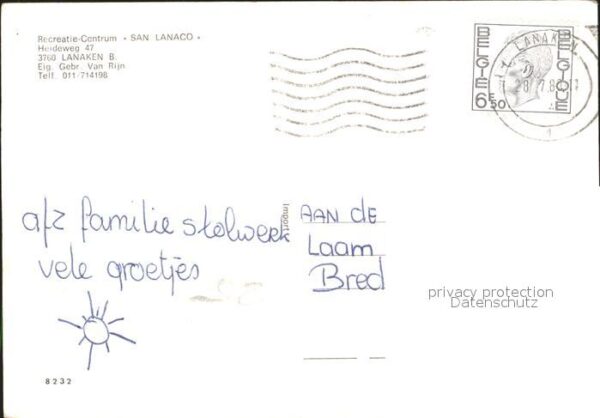 Recreatie-Centrum • SAN LANACO •
Heideweg 47
3760 LANAKEN B.
Eig. Gebr. Van Rijn
Telf. 011-714198
BELGIË
BELGIQUE
6F50
LANAKEN
afz familie stolwerk
vele groetjes
Import
AAN de
Laam
Bred
privacy protection
Datenschutz
8232